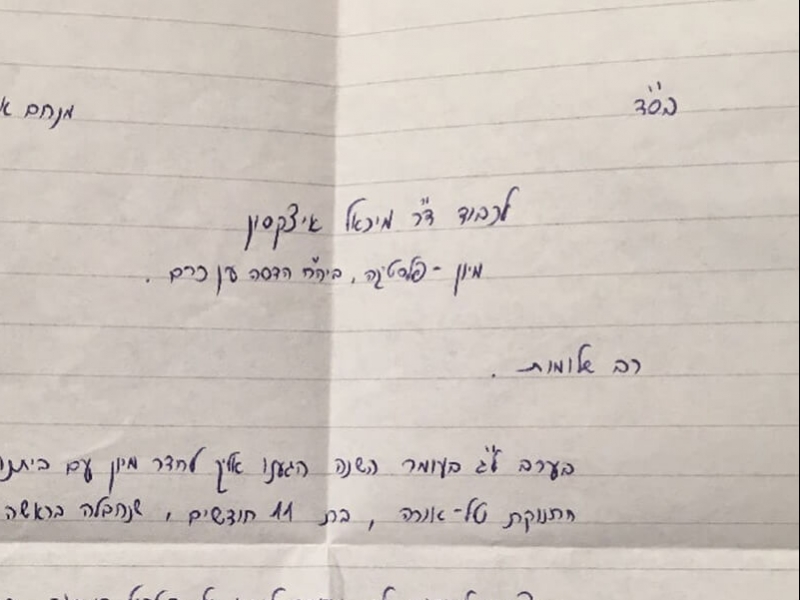 בס"ד
מנחם א
לכבוד ד"ר מיכאל איצקסון
מיון - פלסטיקה, ביה"ח הדסה עין כרם.
רב שלומות.
בערב ל"ג בעומר השנה הגענו אליך לחדר מיון עם ביתנו
התנוקת טל-אורה, בת 11 חודשים, שנחבלה בראשה